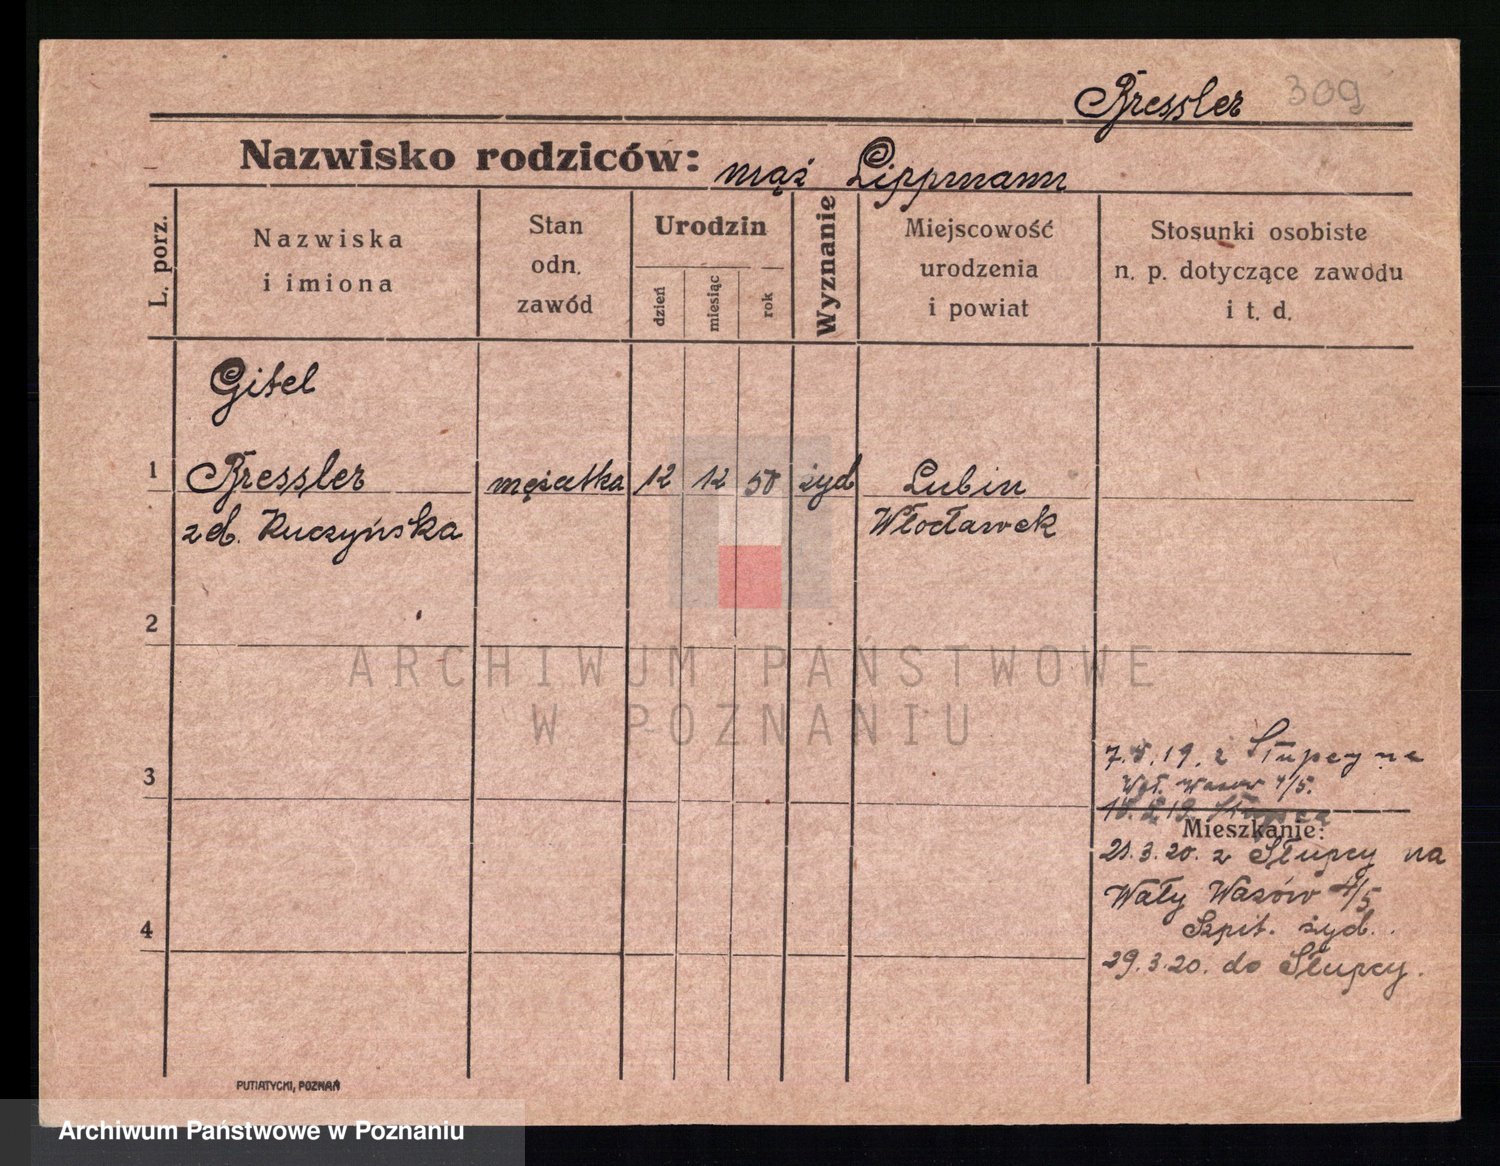 Bressler 309
Nazwisko rodziców: mąż Lippmann
L. porz.
Nazwiska
i imiona
Stan
odn.
zawód
Urodzin
dzień
miesiąc
rok
Wyznanie
Miejscowość
urodzenia
i powiat
Stosunki osobiste
n. p. dotyczące zawodu
i t. d.
Gitel
1 Bressler mężatka 12 12 50 żyd Lubin
zd. Kuczyńska Włocławek
2
ARCHIWUM PAŃSTWOWE
W POZNANIU
7.V.19. z Słupcy na
3 Wał. Wazów 4/5.
19. Słupca
Mieszkanie:
21.3.20. z Słupcy na
Wały Wazów 4/5
4 Szpit. żyd.
29.3.20. do Słupcy.
PUTIATYCKI, POZNAŃ
Archiwum Państwowe w Poznaniu